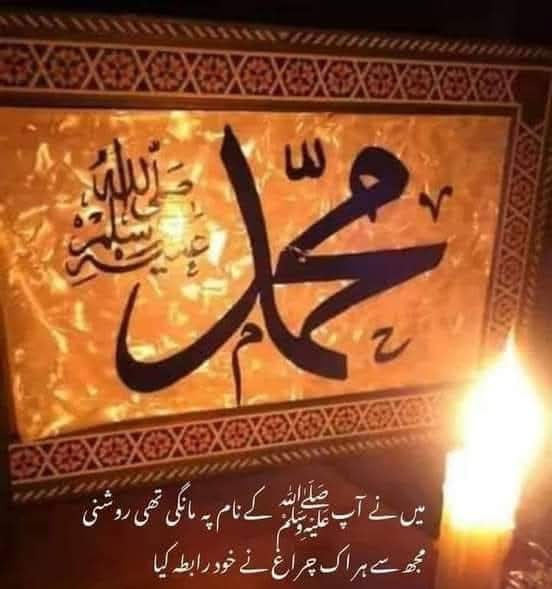 محمد
صلى الله عليه وسلم
میں نے آپ ﷺ کے نام پہ مانگی تھی روشنی
مجھ سے ہر اک چراغ نے خود رابطہ کیا